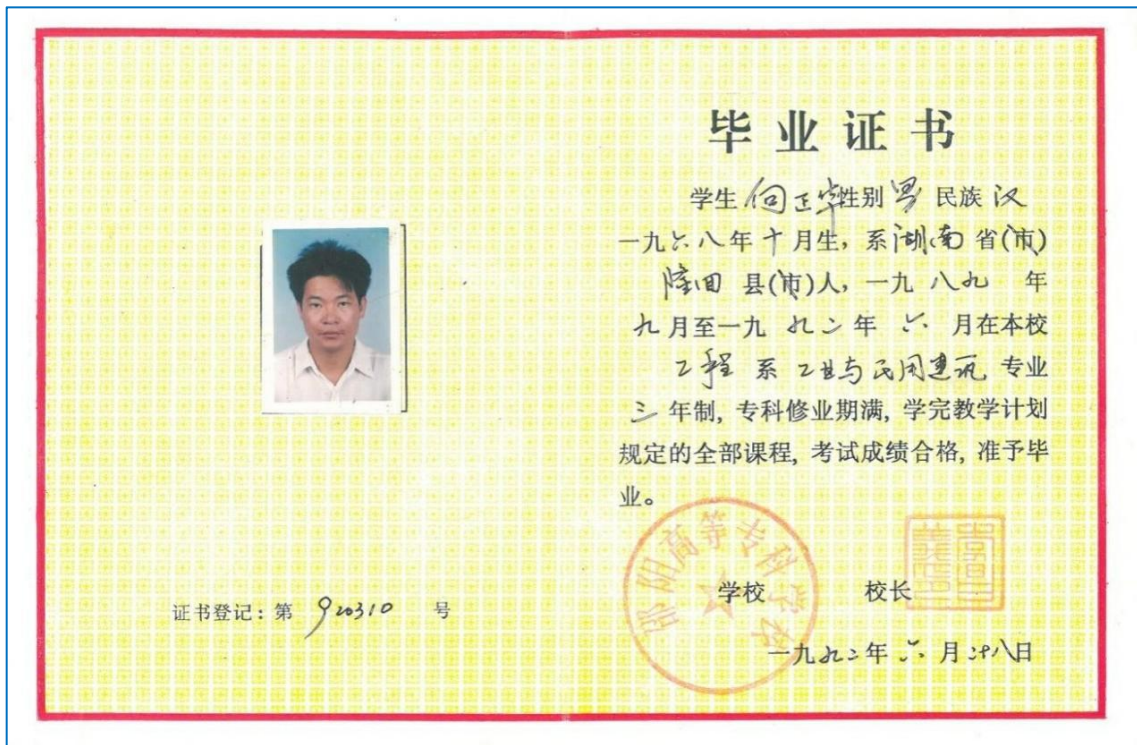 毕业证书
学生 何正华 性别 男 民族 汉
一九六八年十月生，系湖南省(市)
隆回 县(市)人，一九 八九 年
九月至一九 九二 年 六 月在本校
工程 系 工业与民用建筑 专业
三 年制，专科修业期满，学完教学计划
规定的全部课程，考试成绩合格，准予毕
业。
邵阳高等专科学校
学校 校长
一九九二年 六 月 廿八日
证书登记：第 920310 号